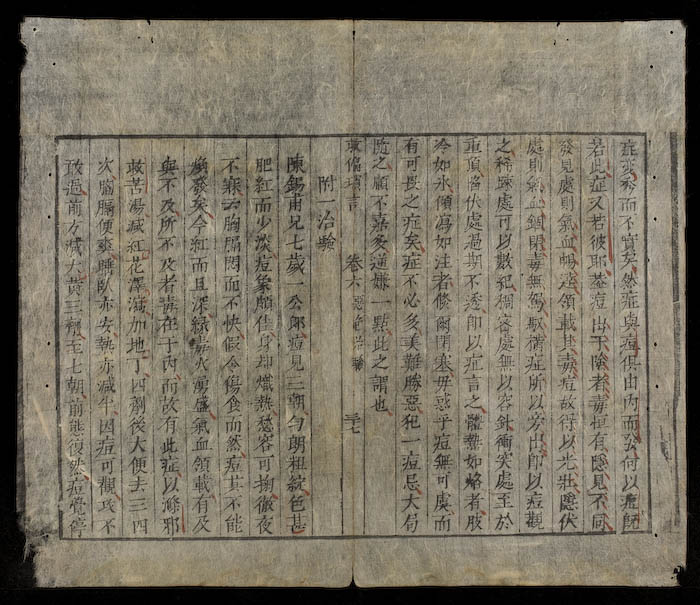 而不實矣然症與痘俱由內而發何以痘既
若此症又若彼耶葢痘出于陰者毒有隱見不同
發見處則氣血暢達領載其毒痘故得以光壯隱伏
處則氣血錮閉毒無駕馭症所以旁出卽以痘觀
之稀踈處可以數紀稠密處無以容針衝突處至於
重頂陷伏處過期不透卽以症言之體熱如烙者肢
冷如氷傾瀉如注者倐爾閉塞毋惑乎痘無可虞而
有可畏之症矣症不必多美難勝惡犯一痘忌大局
隨之顧不嘉多逆嫌一點此之謂也
救偏瑣言 卷六 惡症治驗 三七
附一治驗
陳錫甫兄七歲一公郎痘見二朝勻朗粗綻色甚
肥紅而少淡痘象頗佳身却熾熱愁容可掬徹夜
不寐云胸膈悶而不快假令傷食而然痘甚不能
發矣今紅而且深綠毒火湧盛氣血領載有及
與不及所不及者毒在于內而故有此症以滌邪
救苦湯减紅花澤瀉加地丁四劑後大便去三四
次胸膈便爽睡臥亦安熱亦减半因痘可觀攻不
敢過前方减大黃三劑至七朝前能復然痘覺停